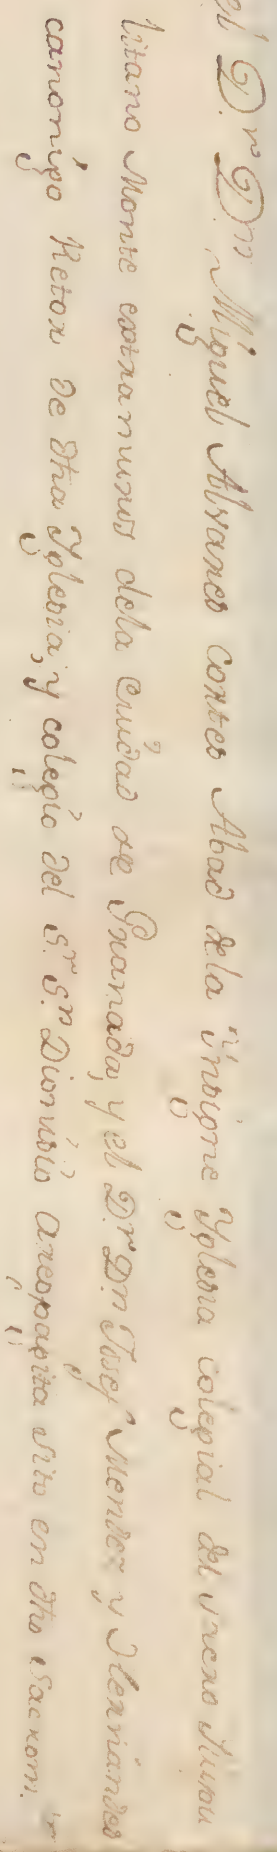 el D.r D.n Miguel Alvarez cortes Abad de la Ynsigne Yglesia colegial del sacro Ilipu
litano Monte extramuros dela Ciudad de Granada, y el D.r D.n Josef Mendez, y Hernandez
canonigo Retor de dha Yglesia, y colegio del S.r S.n Dionisio Areopagita sito en dho Sacrom.